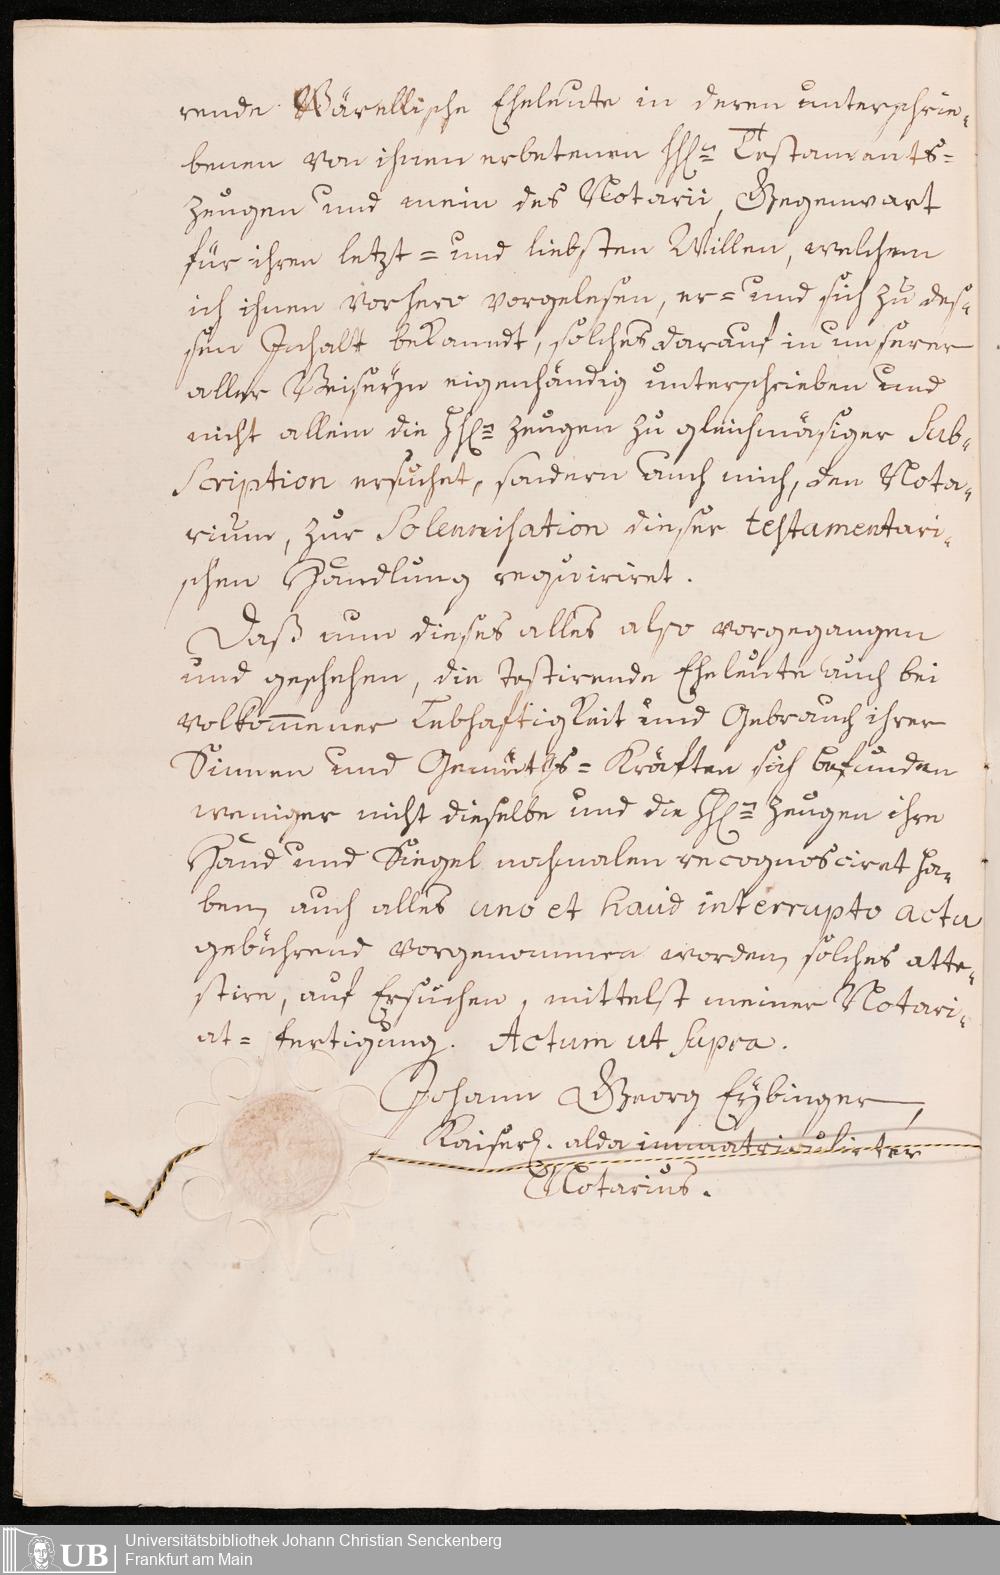 rende Wärellische Eheleute in deren unterschrie-
benen von ihnen erbetenen HH.n Testaments=
Zeugen und mein des Notarii, Gegenwart
für ihren letzt= und liebsten Willen, welchem
ich ihnen vorhero vorgelesen, er= und sich zu des-
sen Inhalt bekanndt, solches darauf in unserer
aller Beiseÿn eigenhändig unterschrieben und
nicht allein die HH.n Zeugen zu gleichmäsiger Sub-
scription ersuchet, sondern auch mich, den Nota-
rium, zur Solennisation dieser testamentari-
schen Handlung requiriret.
Daß nun dieses alles also vorgegangen
und geschehen, die testirende Eheleute auch bei
volkom̅ener Lebhaftigkeit und Gebrauch ihrer
Sinnen und Gemüths= Kräften sich befunden
weniger nicht dieselbe und die HH.n Zeugen ihre
Hand und Siegel nochmalen recognosciret ha-
ben, auch alles uno et haud interrupto actu
gebührend vorgenommen worden, solches atte-
stire, auf Ersuchen, mittelst meiner Notari-
at= fertigung. Actum ut supra.
Johann Georg Eÿbinger,
Kaiserl. alda immatriculirter
Notarius.
UB Universitätsbibliothek Johann Christian Senckenberg
Frankfurt am Main